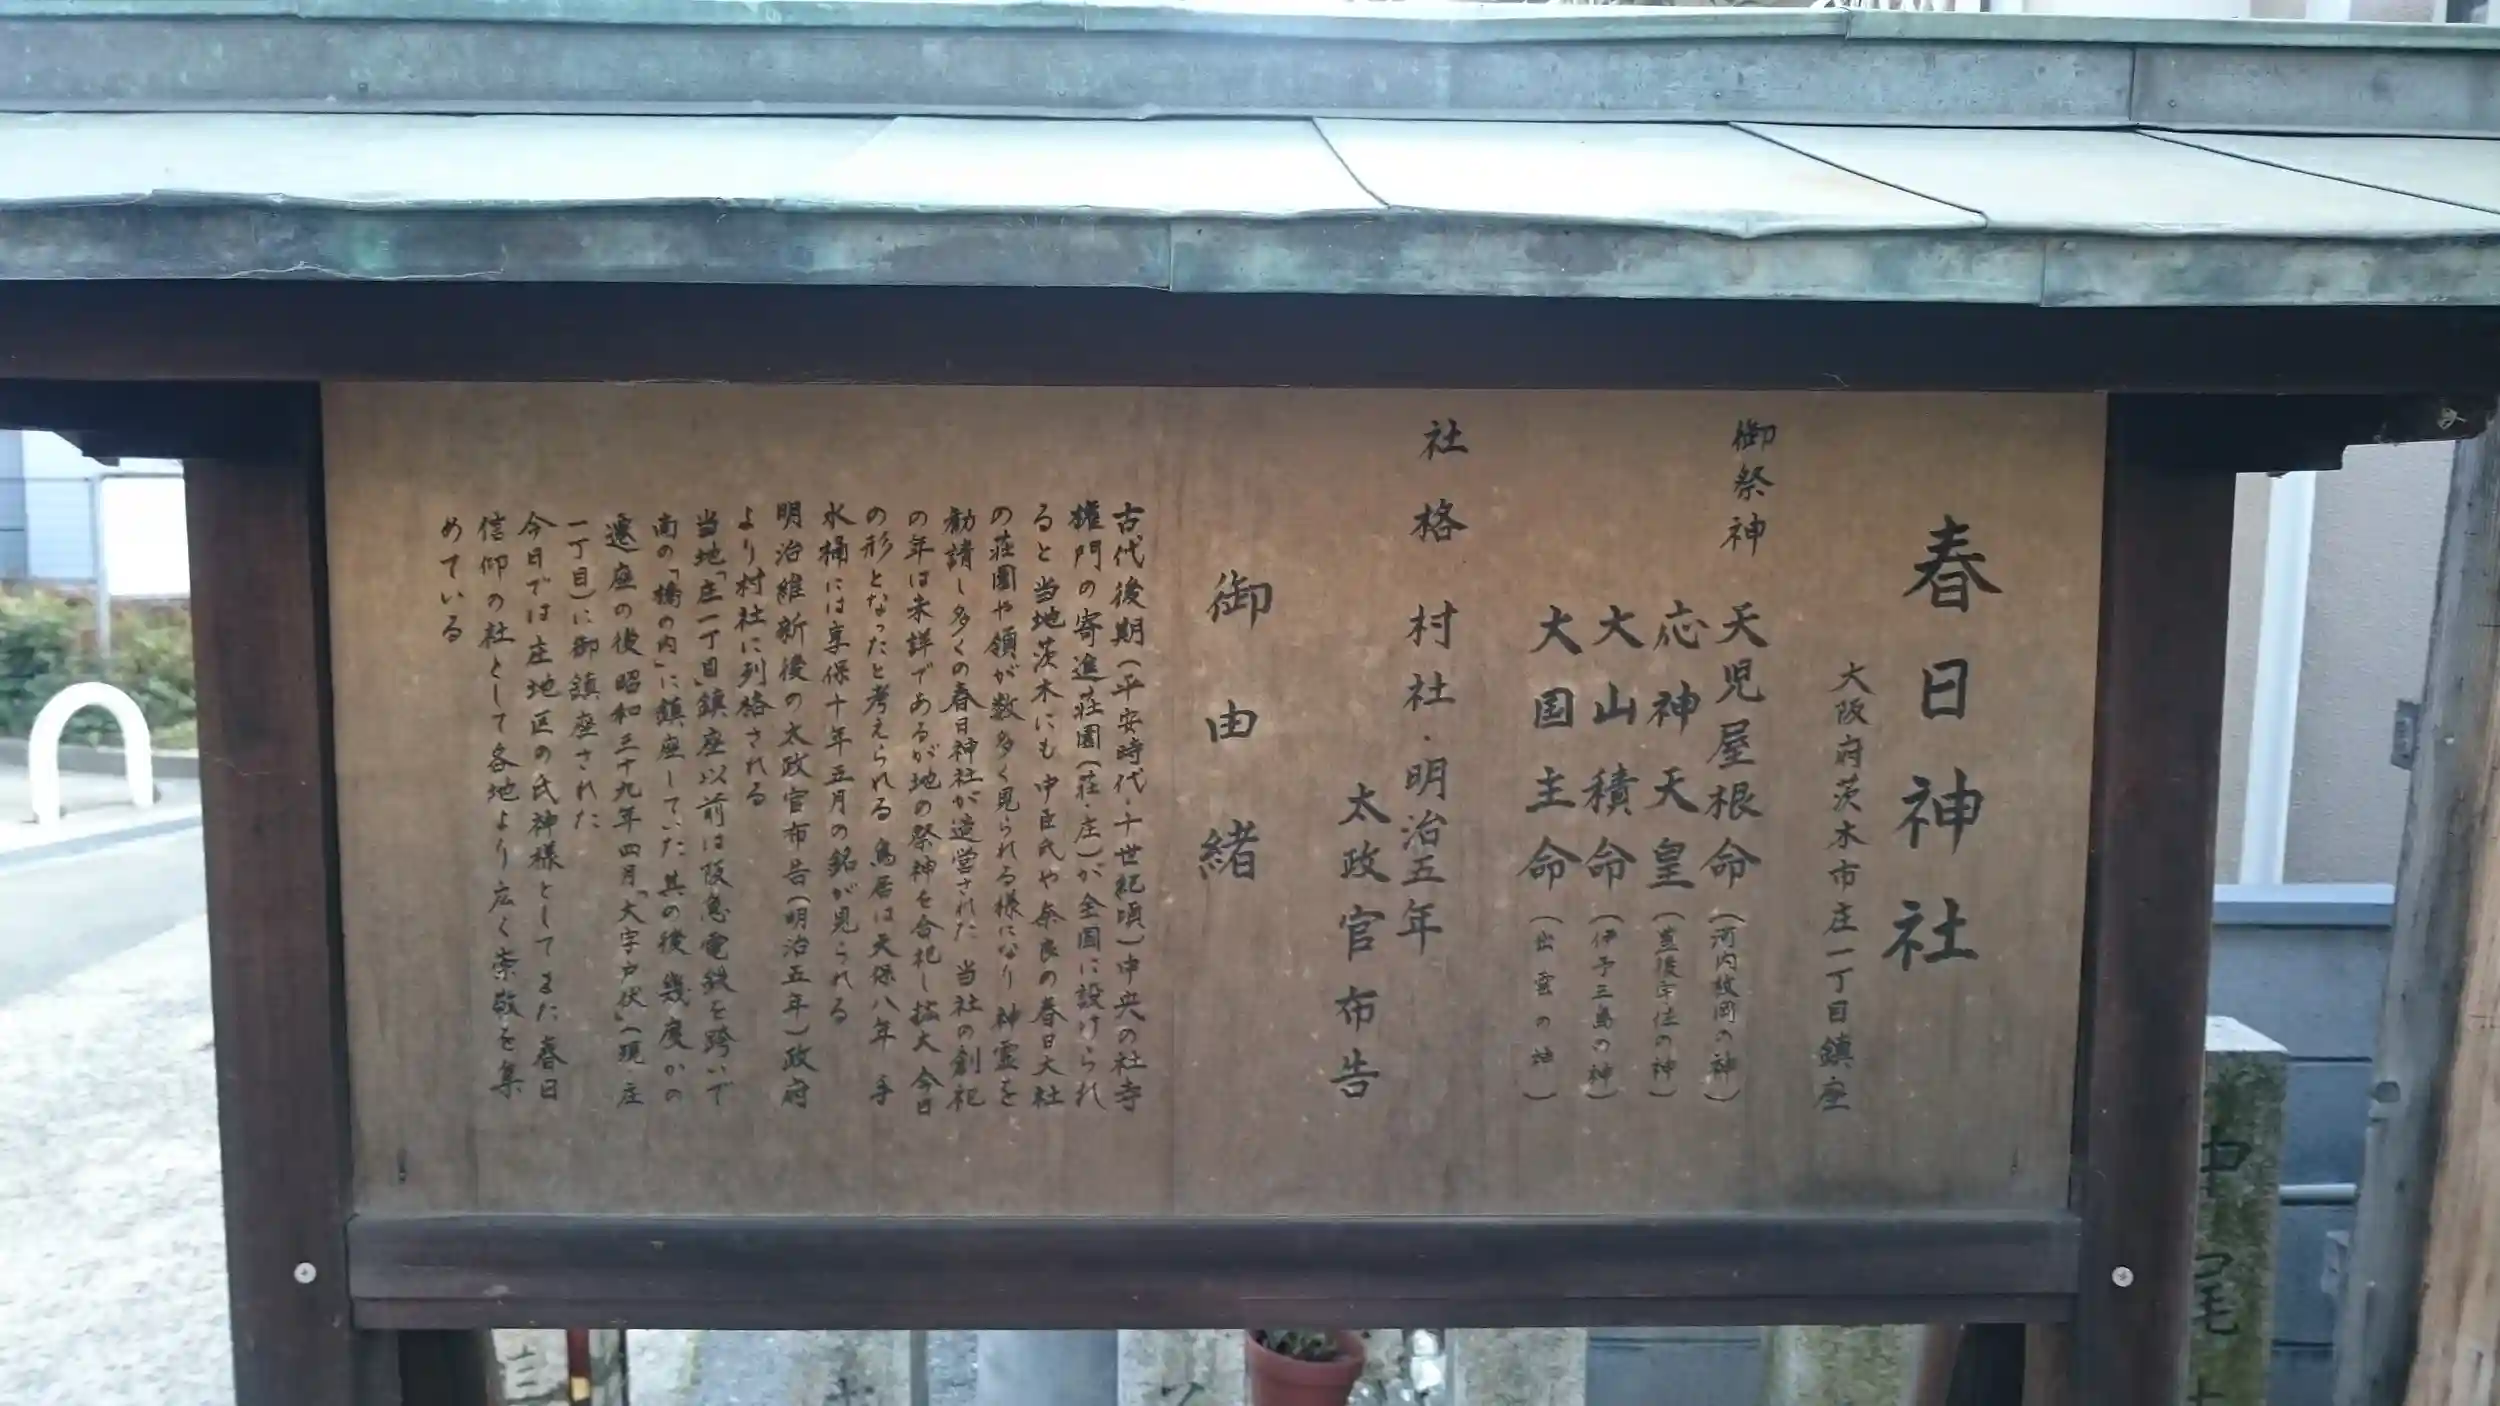 春日神社
大阪府茨木市庄一丁目鎮座
御祭神 天児屋根命(河内枚岡の神)
応神天皇(豊後宇佐の神)
大山積命(伊予三島の神)
大国主命(出雲の神)
社格 村社・明治五年
太政官布告
御由緒
古代後期(平安時代・十世紀頃)中央の社寺
権門の寄進荘園(荘・庄)が全国に設けられ
ると当地茨木にも中臣氏や奈良の春日大社
の荘園や領が数多く見られる様になり 神霊を
勧請し多くの春日神社が造営された 当社の創祀
の年は未詳であるが地の祭神を合祀し拡大 今日
の形となったと考えられる 鳥居は天保八年 手
水桶には享保十年五月の銘が見られる
明治維新後の太政官布告(明治五年)政府
より村社に列格される
当地「庄一丁目」鎮座以前は阪急電鉄を跨いで
南の「橋の内」に鎮座していた 其の後 幾度かの
遷座の後 昭和三十九年四月「大字戸伏」(現 庄
一丁目)に御鎮座された
今日では庄地区の氏神様としてまた春日
信仰の社として各地より広く崇敬を集
めている
中
尾